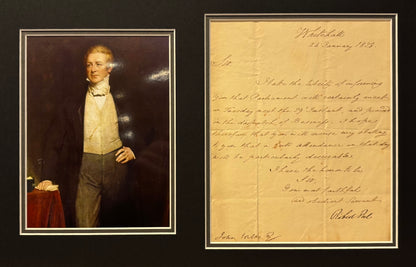 Whitehall
24 January 1822
Sir
I take the liberty of informing
you that Parliament will certainly meet
on Tuesday next the Instant and proceed
in the dispatch of Business. I hope
therefore that you will excuse my stating
to you that a attendance on that day
will be particularly desirable.
I have the honor to be
Sir
Your most faithful
and obedient Servant
Robert Peel
John